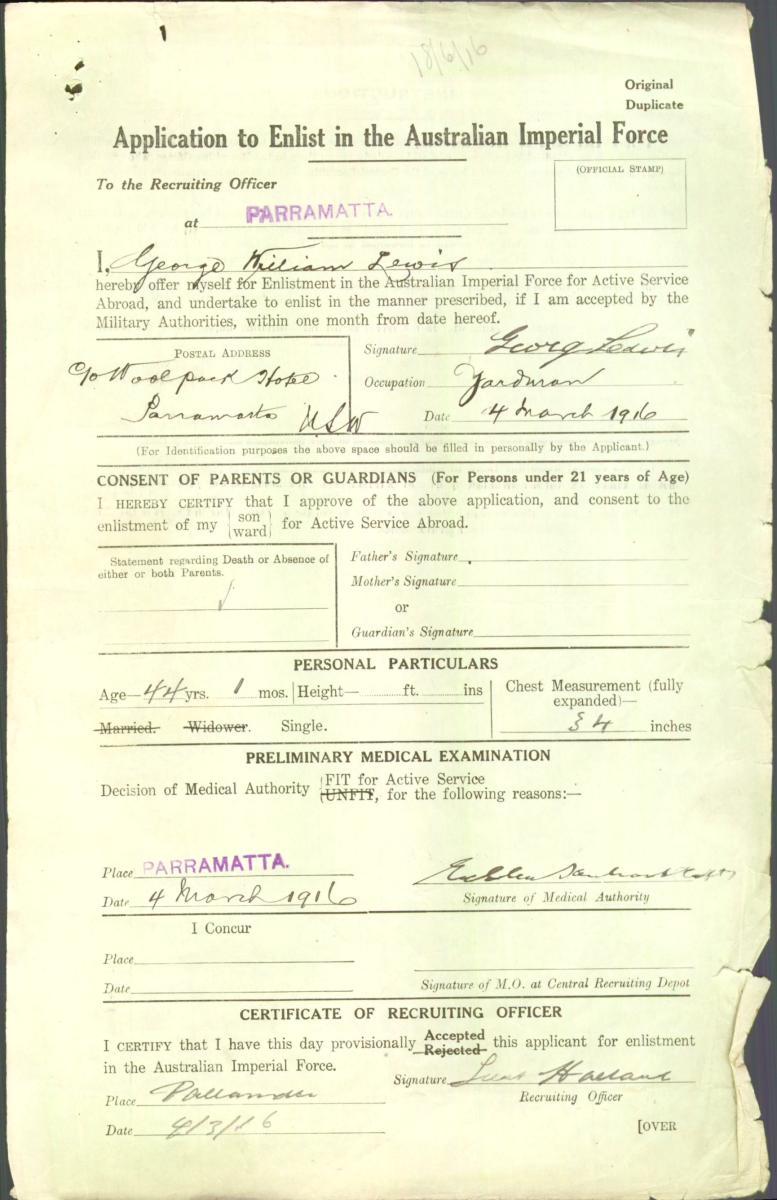 18/6/16
Original
Duplicate
Application to Enlist in the Australian Imperial Force
To the Recruiting Officer
(OFFICIAL STAMP)
at PARRAMATTA.
I, George William Lewis
hereby offer myself for Enlistment in the Australian Imperial Force for Active Service
Abroad, and undertake to enlist in the manner prescribed, if I am accepted by the
Military Authorities, within one month from date hereof.
POSTAL ADDRESS
c/o Woolpack Hotel
Parramatta NSW
Signature Georg Lewis
Occupation Yardman
Date 4 March 1916
(For Identification purposes the above space should be filled in personally by the Applicant.)
CONSENT OF PARENTS OR GUARDIANS (For Persons under 21 years of Age)
I HEREBY CERTIFY that I approve of the above application, and consent to the
enlistment of my son ward for Active Service Abroad.
Statement regarding Death or Absence of
either or both Parents.
Father's Signature
Mother's Signature
or
Guardian's Signature
PERSONAL PARTICULARS
Age—44 yrs. 1 mos. Height— ft. ins
Chest Measurement (fully
expanded)—
34 inches
Married. Widower. Single.
PRELIMINARY MEDICAL EXAMINATION
Decision of Medical Authority FIT for Active Service
UNFIT, for the following reasons:—
Place PARRAMATTA.
Date 4 March 1916
Signature of Medical Authority
I Concur
Place
Date
Signature of M.O. at Central Recruiting Depot
CERTIFICATE OF RECRUITING OFFICER
I CERTIFY that I have this day provisionally Accepted Rejected this applicant for enlistment
in the Australian Imperial Force.
Signature
Recruiting Officer
Place
Date 4/3/16
[OVER